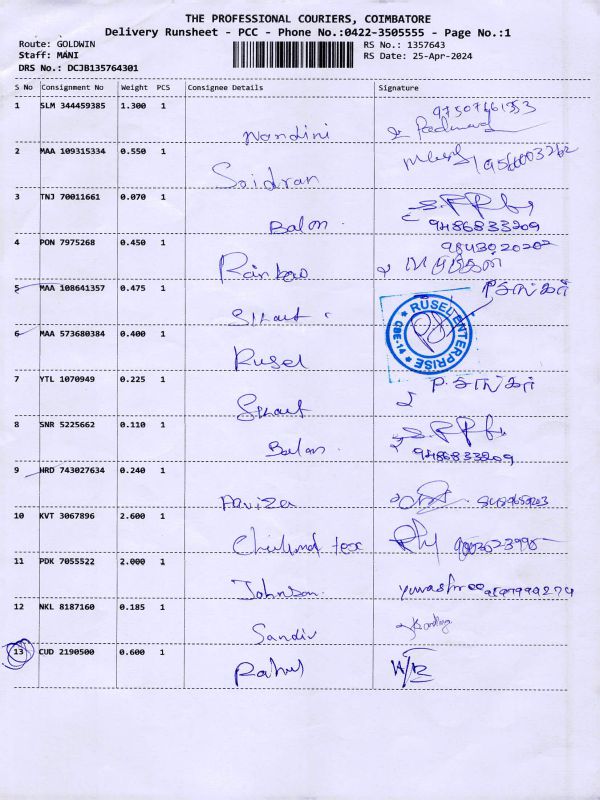 THE PROFESSIONAL COURIERS, COIMBATORE
Delivery Runsheet - PCC - Phone No.:0422-3505555 - Page No.:1
Route: GOLDWIN RS No.: 1357643
Staff: MANI RS Date: 25-Apr-2024
DRS No.: DCJB135764301
S No Consignment No Weight PCS Consignee Details Signature
1 SLM 344459385 1.300 1
Nandini
2 MAA 109315334 0.550 1
3 TNJ 70011661 0.070 1
Balan 9486833209
4 PON 7975268 0.450 1 9843020202
Rainbow
5 MAA 108641357 0.475 1
6 MAA 573680384 0.400 1 RUSEL ENTERPRISE CBE-14
Rusel
7 YTL 1070949 0.225 1
8 SNR 5225662 0.110 1
Balan 9486833209
9 HRD 743027634 0.240 1
10 KVT 3067896 2.600 1
11 PDK 7055522 2.000 1
Johnson
12 NKL 8187160 0.185 1
Sandiv
13 CUD 2190500 0.600 1
Rahul